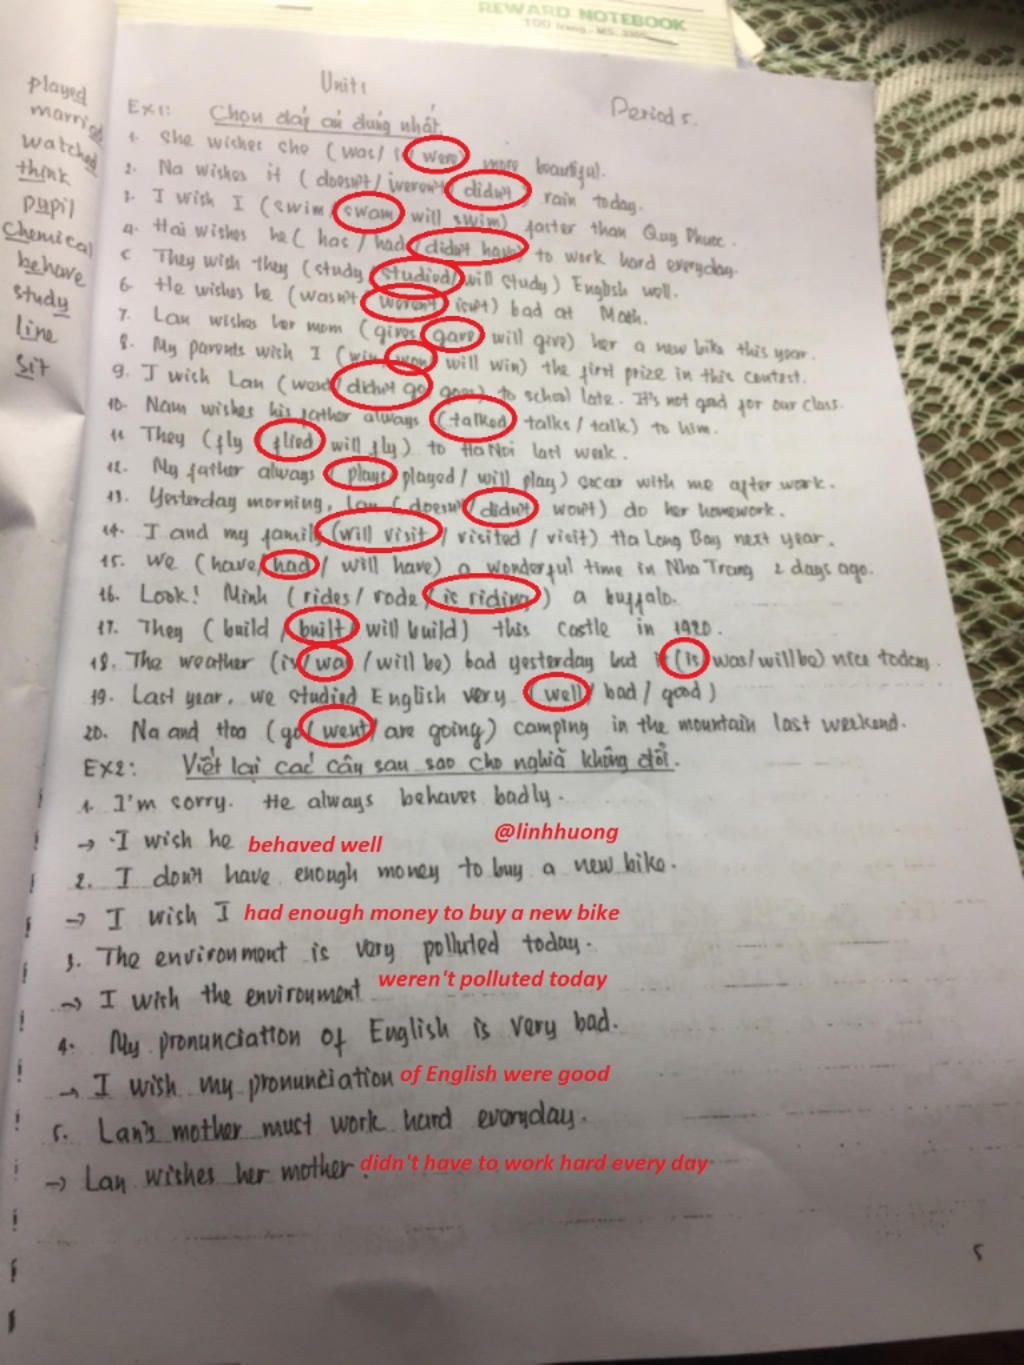 REWARD NOTEBOOK
played
married
watched
think
pupil
chemical
behave
study
line
sit
Unit 1
Period 5.
EX1: Chọn đáp án đúng nhất.
1. She wishes she (was/ is/ were) more beautiful.
2. Na wishes it (doesn't/ weren't/ didn't) rain today.
3. I wish I (swim/ swam/ will swim) faster than Quy Phuoc.
4. Hai wishes he (has / had/ didn't have) to work hard everyday.
5. They wish they (study/ studied/ will study) English well.
6. He wishes he (wasn't/ weren't/ isn't) bad at Math.
7. Lan wishes her mom (gives/ gave/ will give) her a new bike this year.
8. My parents wish I (win/ won/ will win) the first prize in this contest.
9. I wish Lan (went/ didn't go/ goes) to school late. It's not good for our class.
10. Nam wishes his father always (talked/ talks / talk) to him.
11. They (fly/ flied/ will fly) to Ha Noi last week.
12. My father always (plays/ played / will play) soccer with me after work.
13. Yesterday morning, Lan (doesn't/ didn't/ won't) do her homework.
14. I and my family (will visit / visited / visit) Ha Long Bay next year.
15. We (have/ had / will have) a wonderful time in Nha Trang 2 days ago.
16. Look! Minh (rides/ rode / is riding) a buffalo.
17. They (build / built/ will build) this castle in 1920.
18. The weather (is/ was /will be) bad yesterday but it (is/ was/will be) nice today.
19. Last year, we studied English very (well/ bad / good)
20. Na and Hoa (go/ went/ are going) camping in the mountain last weekend.
EX2: Viết lại các câu sau sao cho nghĩa không đổi.
1. I'm sorry. He always behaves badly.
→ I wish he behaved well @linhhuong
2. I don't have enough money to buy a new bike.
→ I wish I had enough money to buy a new bike
3. The environment is very polluted today.
→ I wish the environment weren't polluted today
4. My pronunciation of English is very bad.
→ I wish my pronunciation of English were good
5. Lan's mother must work hard everyday.
→ Lan wishes her mother didn't have to work hard every day
5